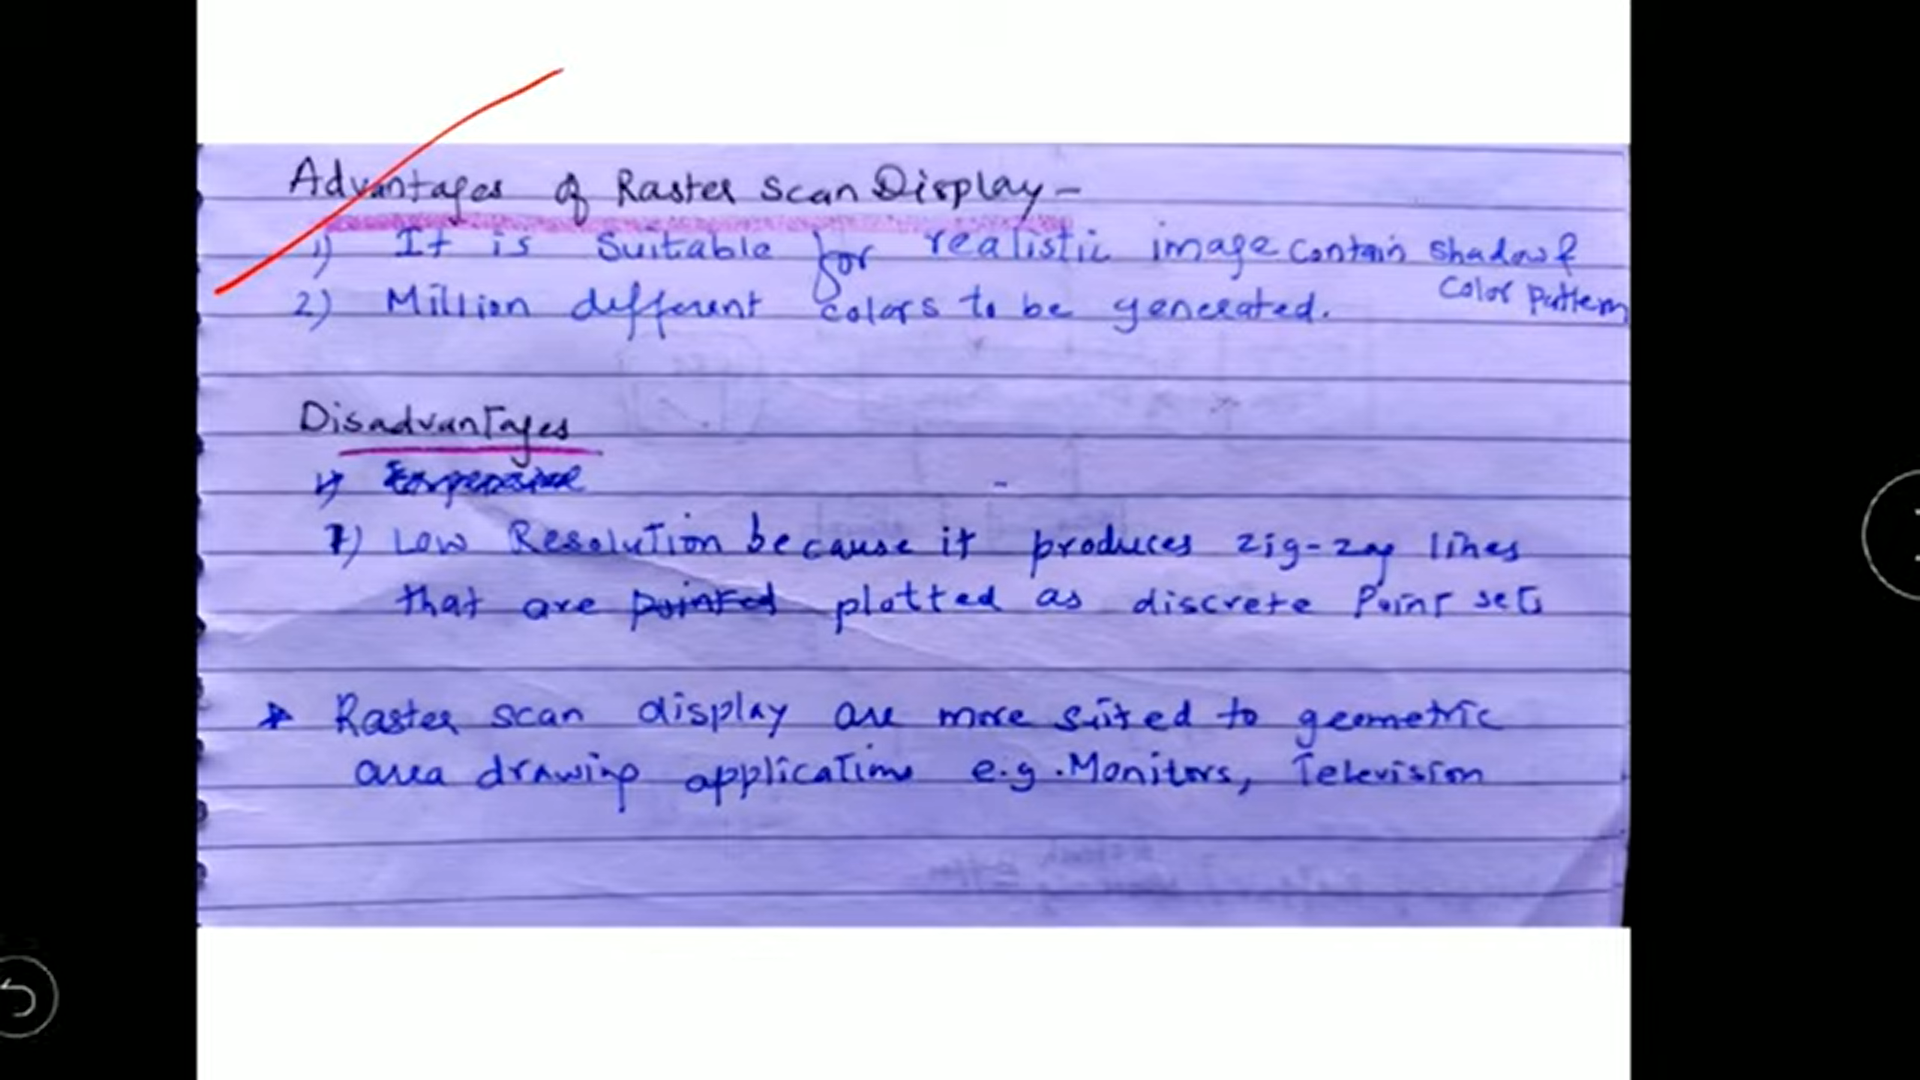 Advantages of Raster Scan Display -
1) It is Suitable for realistic image contain shadow &
color pattern
2) Million different colors to be generated.
Disadvantages
1) Expensive
1) Low Resolution because it produces zig-zag lines
that are pointed plotted as discrete Point sets
Raster scan display are more suited to geometric
area drawing applications e.g. Monitors, Television